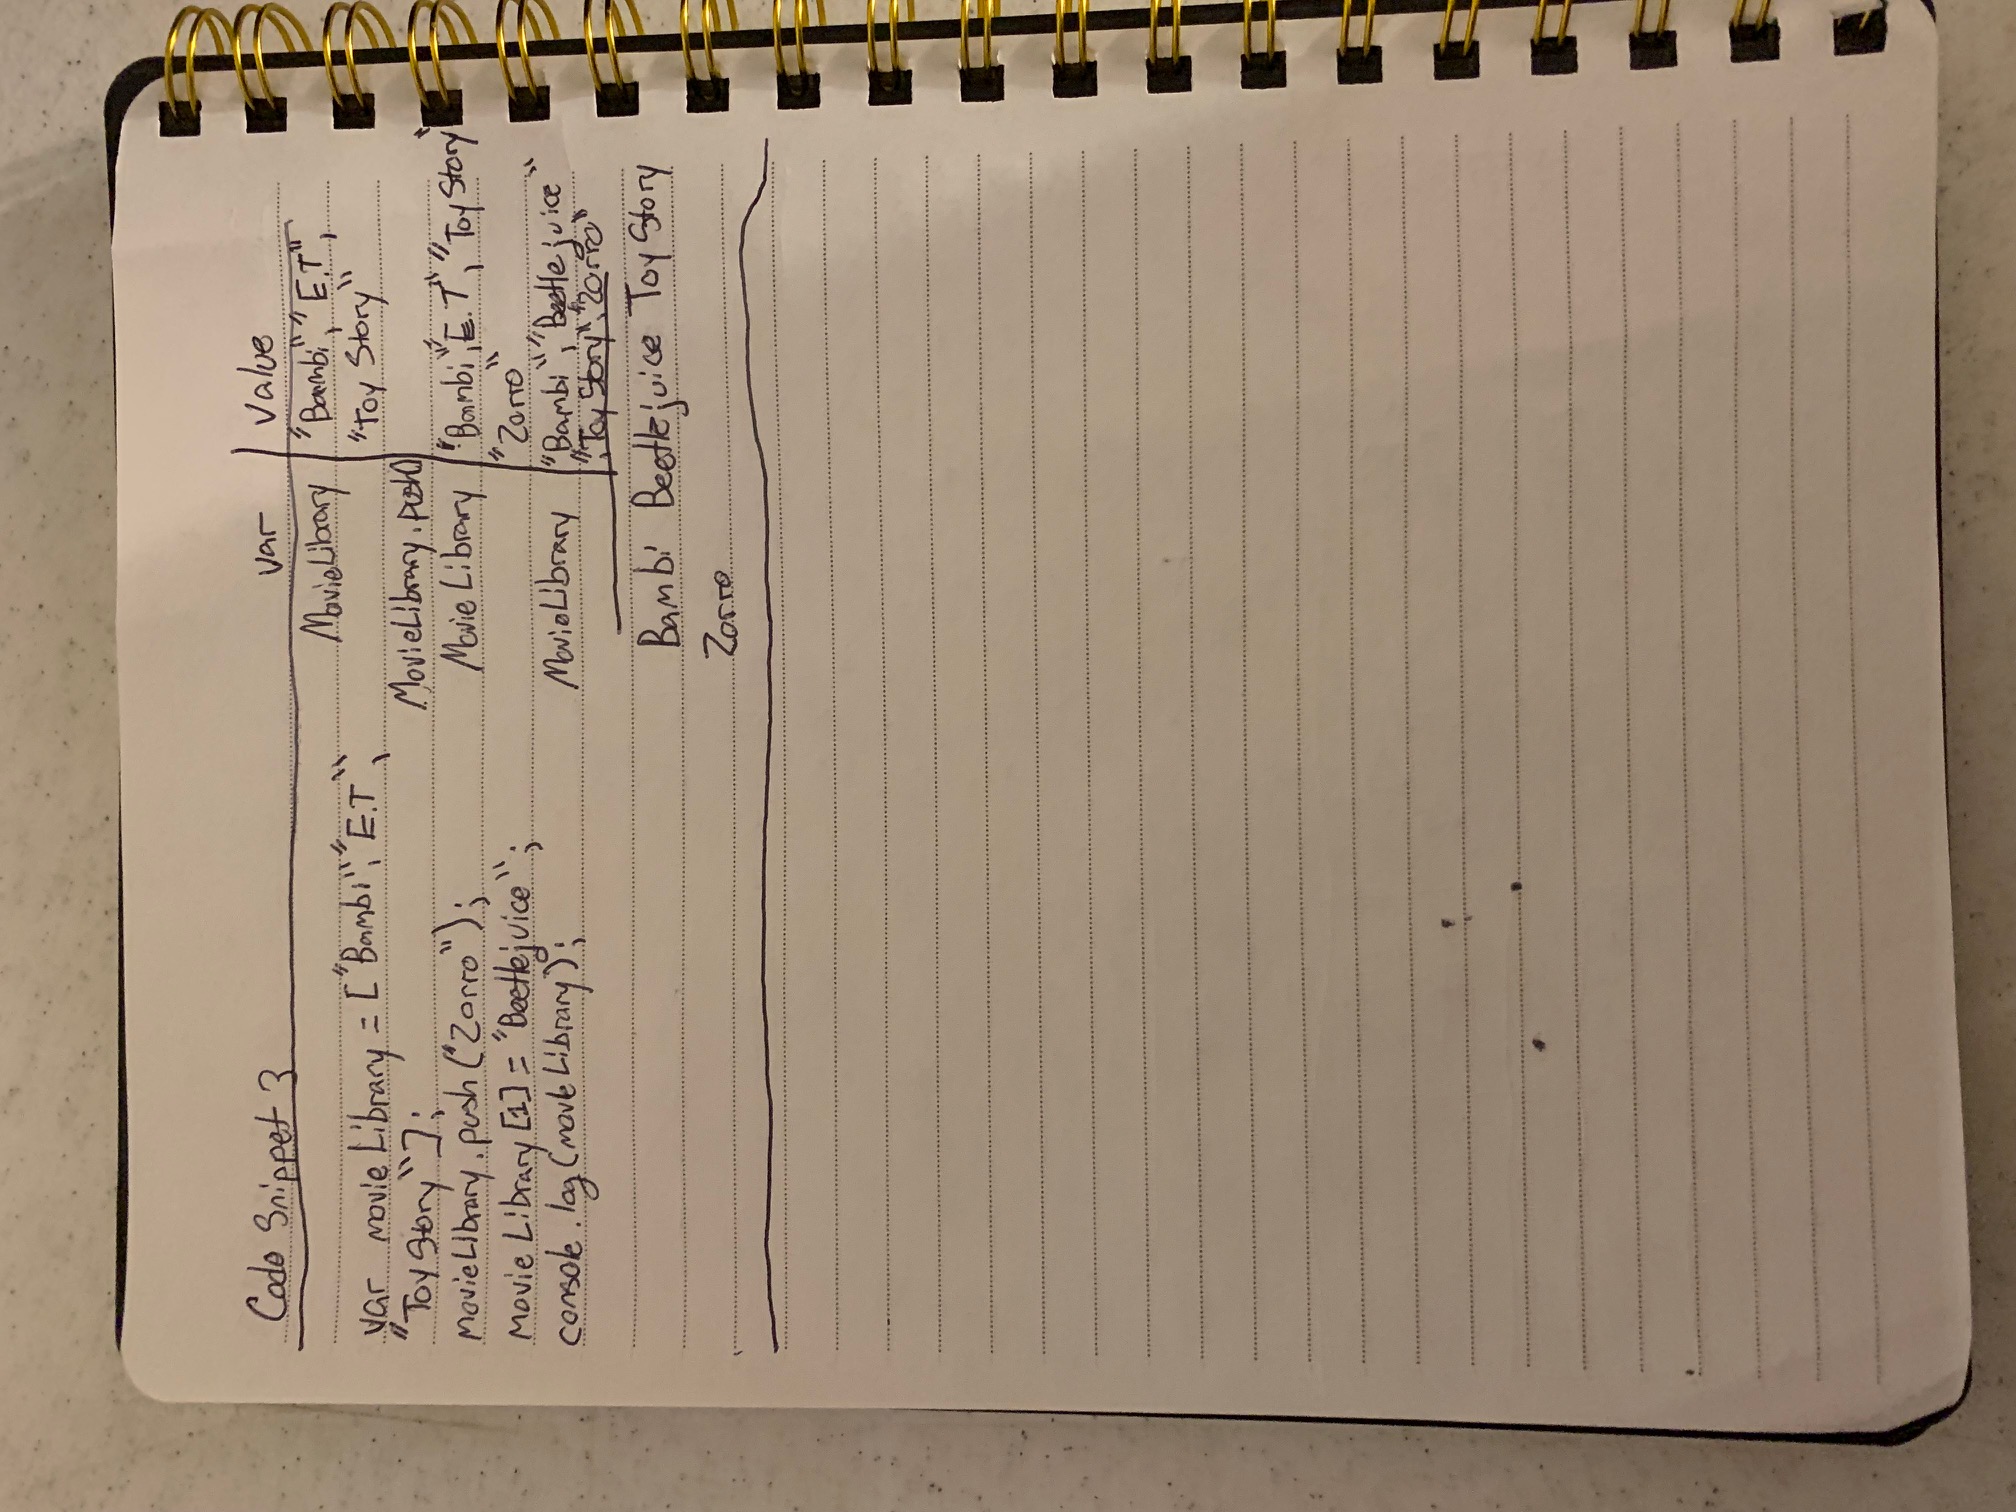 Code Snippet 3
var movieLibrary = ["Bambi", "E.T",
"Toy Story"];
movieLibrary.push("Zorro");
movieLibrary[1] = "Beetlejuice";
console.log(movieLibrary);
var value
MovieLibrary "Bambi", "E.T",
"Toy Story"
MovieLibrary.push()
MovieLibrary "Bambi", E.T", "Toy Story"
"Zorro"
MovieLibrary "Bambi", "Beetlejuice"
,"Toy Story", "Zorro"
Bambi Beetlejuice Toy Story
Zorro